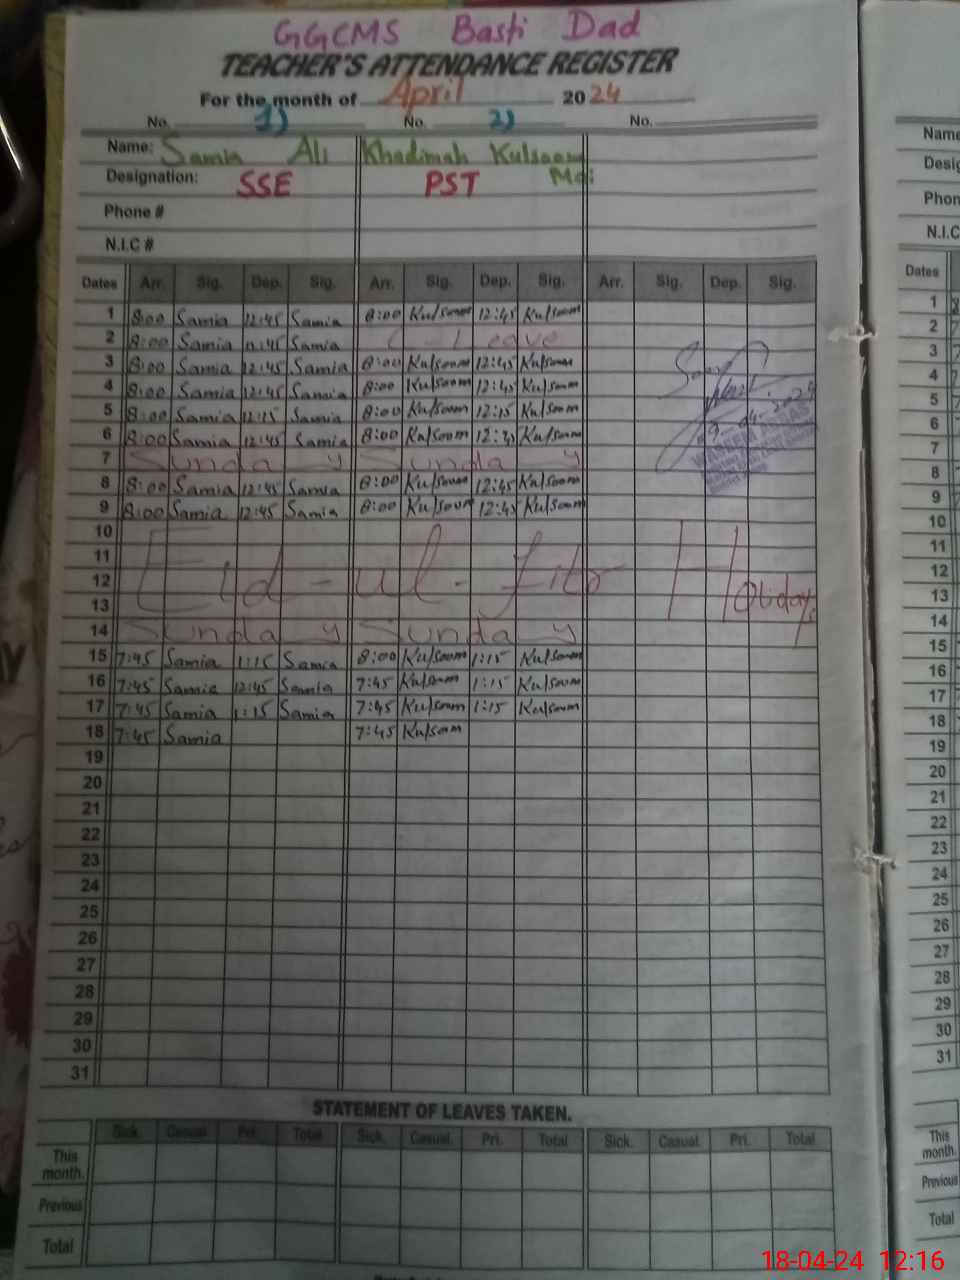 GGCMS Basti Dad
TEACHER'S ATTENDANCE REGISTER
For the month of April 2024
No. 1) No. 2) No.
Name: Samia Ali Khadimah Kulsoom
Designation: SSE PST Mai
Phone #
N.I.C #
Dates Arr. Sig. Dep. Sig. Arr. Sig. Dep. Sig. Arr. Sig. Dep. Sig.
1 8:00 Samia 12:45 Samia 8:00 Kulsoom 12:45 Kulsoom
2 8:00 Samia 12:45 Samia C-Leave
3 8:00 Samia 12:45 Samia 8:00 Kulsoom 12:45 Kulsoom
4 8:00 Samia 12:45 Samia 8:00 Kulsoom 12:45 Kulsoom
5 8:00 Samia 12:15 Samia 8:00 Kulsoom 12:15 Kulsoom
6 8:00 Samia 12:45 Samia 8:00 Kulsoom Kulsoom
7 Sunday Sunday
8 8:00 Samia 12:45 Samia 8:00 Kulsoom 12:45 Kulsoom
9 8:00 Samia 12:45 Samia 8:00 Kulsoom 12:45 Kulsoom
10
11
12 Eid-ul-fitr Holidays
13
14 Sunday Sunday
15 7:45 Samia 1:15 Samia 8:00 Kulsoom 1:15 Kulsoom
16 7:45 Samia 12:45 Samia 7:45 Kulsoom 1:15 Kulsoom
17 7:45 Samia 1:15 Samia 7:45 Kulsoom 1:15 Kulsoom
18 7:45 Samia 7:45 Kulsoom
19
20
21
22
23
24
25
26
27
28
29
30
31
STATEMENT OF LEAVES TAKEN.
Sick. Casual. Pri. Total Sick. Casual. Pri. Total Sick. Casual. Pri. Total
This
month.
Previous
Total
Name
Phon
N.I.C
Dates
1
2
3
4
5
6
7
8
9
10
11
12
13
14
15
16
17
18
19
20
21
22
23
24
25
26
27
28
29
30
31
This
month.
Previous
Total
18-04-24 12:16